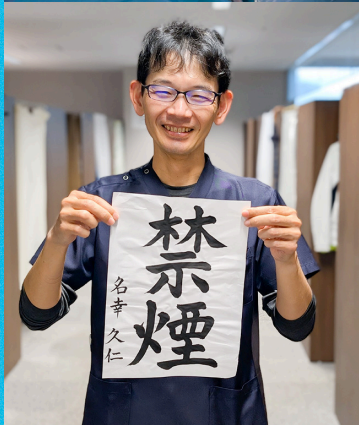 禁煙
名幸 久仁